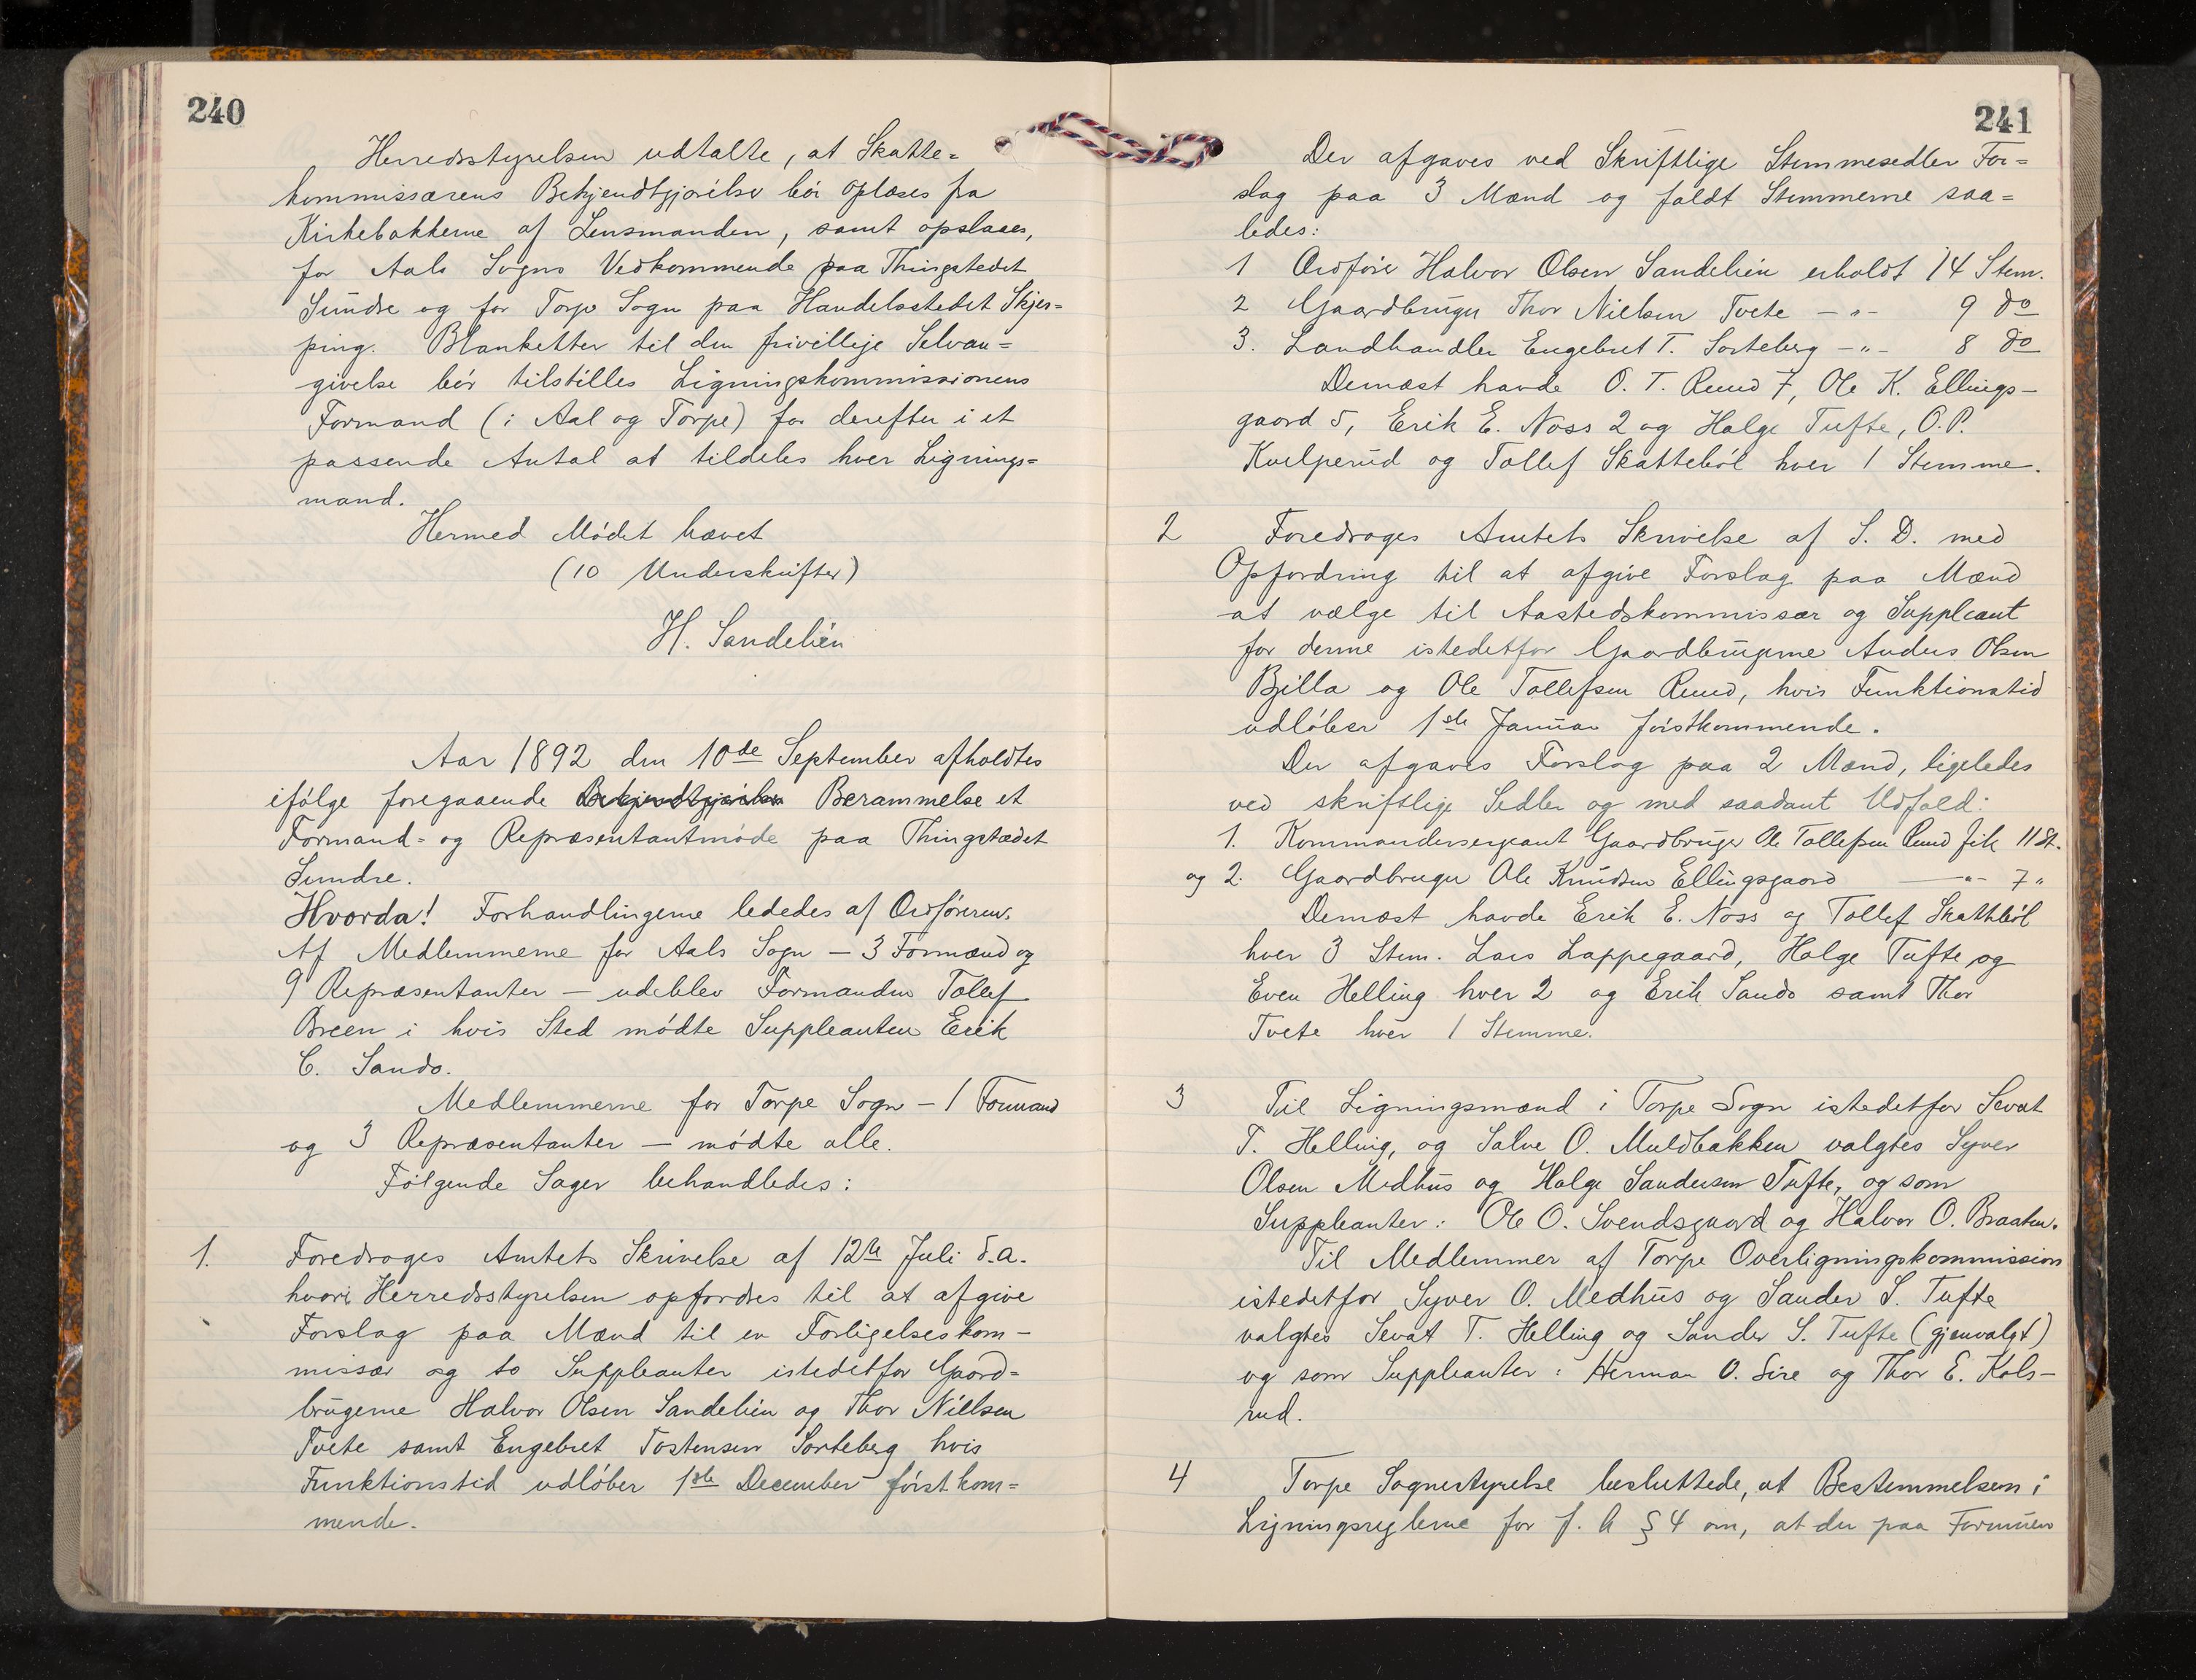 240
Herredsstyrelsen udtalte, at Skatte=
kommissærens Bekjendtgjørelse bør oplæses fra
Kirkebakkerne af Lensmanden, samt opslaaes,
for Aals Sogns Vedkommende paa Thingstedet
Sundre og for Torpe Sogn paa Handelsstedet Skjer=
ping. Blanketter til den frivillige Selvan=
givelse bør tilstilles Ligningskommissionens
Formand (i Aal og Torpe) for derefter i et
passende Antal at tildeles hver Lignings=
mand.
Hermed Mødet hævet
(10 Underskrifter)
H. Sandelien
Aar 1892 den 10de September afholdtes
ifølge foregaaende Bekjendtgjørelse Berammelse et
Formand= og Repræsentantmøde paa Thingstædet
Sundre.
Hvorda! Forhandlingerne lededes af Ordføreren.
Af Medlemmerne for Aals Sogn – 3 Formænd og
9 Repræsentanter – udeblev Formanden Tollef
Breen i hvis Sted mødte Suppleanten Erik
C. Sando.
Medlemmerne for Torpe Sogn – 1 Formand
og 3 Repræsentanter – mødte alle.
Følgende Sager behandledes:
1. Foredroges Amtets Skrivelse af 12te Juli d.a.
hvori Herredsstyrelsen opfordres til at afgive
Forslag paa Mænd til en Forligelseskom-
missær og to Suppleanter istedetfor Gaard=
brugerne Halvor Olsen Sandelien og Thor Nielsen
Tvete samt Engebret Tostensen Sorteberg hvis
Funktionstid udløber 1ste December førstkom=
mende.
241
Der afgaves ved Skriftlige Stemmesedler For=
slag paa 3 Mænd og faldt Stemmerne saa=
ledes:
1 Ordfører Halvor Olsen Sandelien erholdt 14 Stem.
2 Gaardbruger Thor Nielsen Tvete – " – 9 do
3. Landhandler Engebret T. Sorteberg – " – 8 do
Dernæst havde O. T. Ruud 7, Ole K. Ellings-
gaard 5, Erik E. Noss 2 og Halge Tufte, O. P.
Kvelperud og Tollef Skattebøl hver 1 Stemme.
2 Foredroges Amtets Skrivelse af S. D. med
Opfordring til at afgive Forslag paa Mænd
at vælge til Aastedskommissær og Suppleant
for denne istedetfor Gaardbrugerne Anders Olsen
Bjilla og Ole Tollefsen Ruud, hvis Funktionstid
udløber 1ste Januar førstkommende.
Der afgaves Forslag paa 2 Mænd, ligeledes
ved skriftlige Sedler og med saadant Udfald:
1. Kommandersergeant Gaardbruger Ole Tollefsen Ruud fik 11 St.
og 2. Gaardbruger Ole Knudsen Ellingsgaard – " – 7 "
Dernæst havde Erik E. Noss og Tollef Skattebøl
hver 3 Stem. Lars Lappegaard, Halge Tufte og
Even Helling hver 2 og Erik Sando samt Thor
Tvete hver 1 Stemme.
3 Til Ligningsmænd i Torpe Sogn istedetfor Sevat
T. Helling, og Salve O. Muldbakken valgtes Syver
Olsen Medhus og Halge Sandersen Tufte, og som
Suppleanter: Ole O. Svendsgaard og Halvor O. Braaten.
Til Medlemmer af Torpe Overligningskommission
istedetfor Syver O. Medhus og Sander S. Tufte
valgtes Sevat T. Helling og Sander S. Tufte (gjenvalgt)
og som Suppleanter: Herman O. Sire og Thor E. Kols-
rud.
4 Torpe Sognestyrelse besluttede, at Bestemmelsen i
Ligningsreglerne for f. A § 4 om, at der paa Formuen